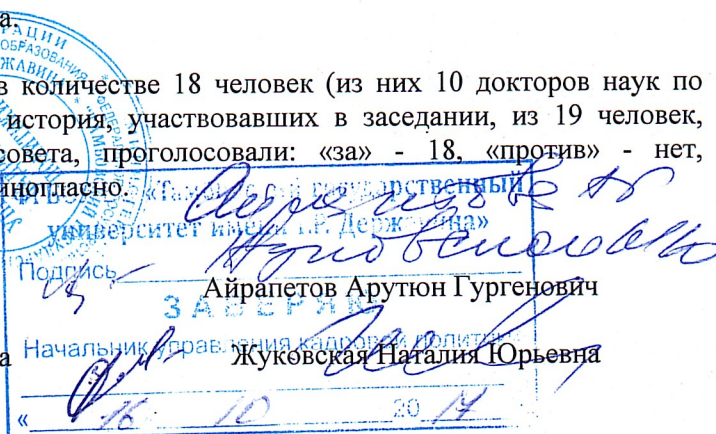 а.
в количестве 18 человек (из них 10 докторов наук по
история, участвовавших в заседании, из 19 человек,
совета, проголосовали: «за» - 18, «против» - нет,
иногласно.
государственный
университет имени Г.Р. Державина»
Подпись
Айрапетов Арутюн Гургенович
ЗАВЕРЯЮ
Начальник управления кадровой политики
а Жуковская Наталия Юрьевна
« 16 10 20 17